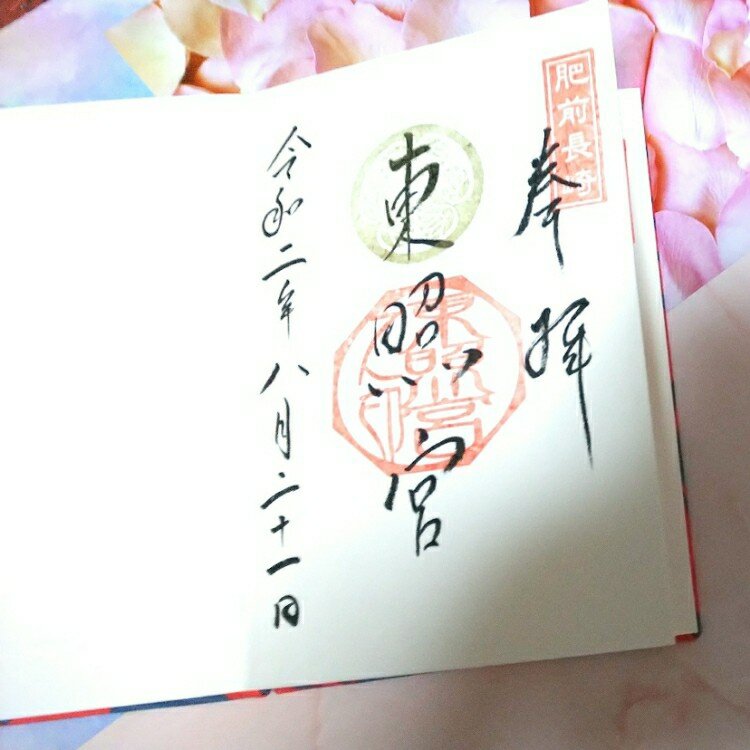 肥前長崎
奉拝
東照宮
東照宮印
令和二年八月二十一日